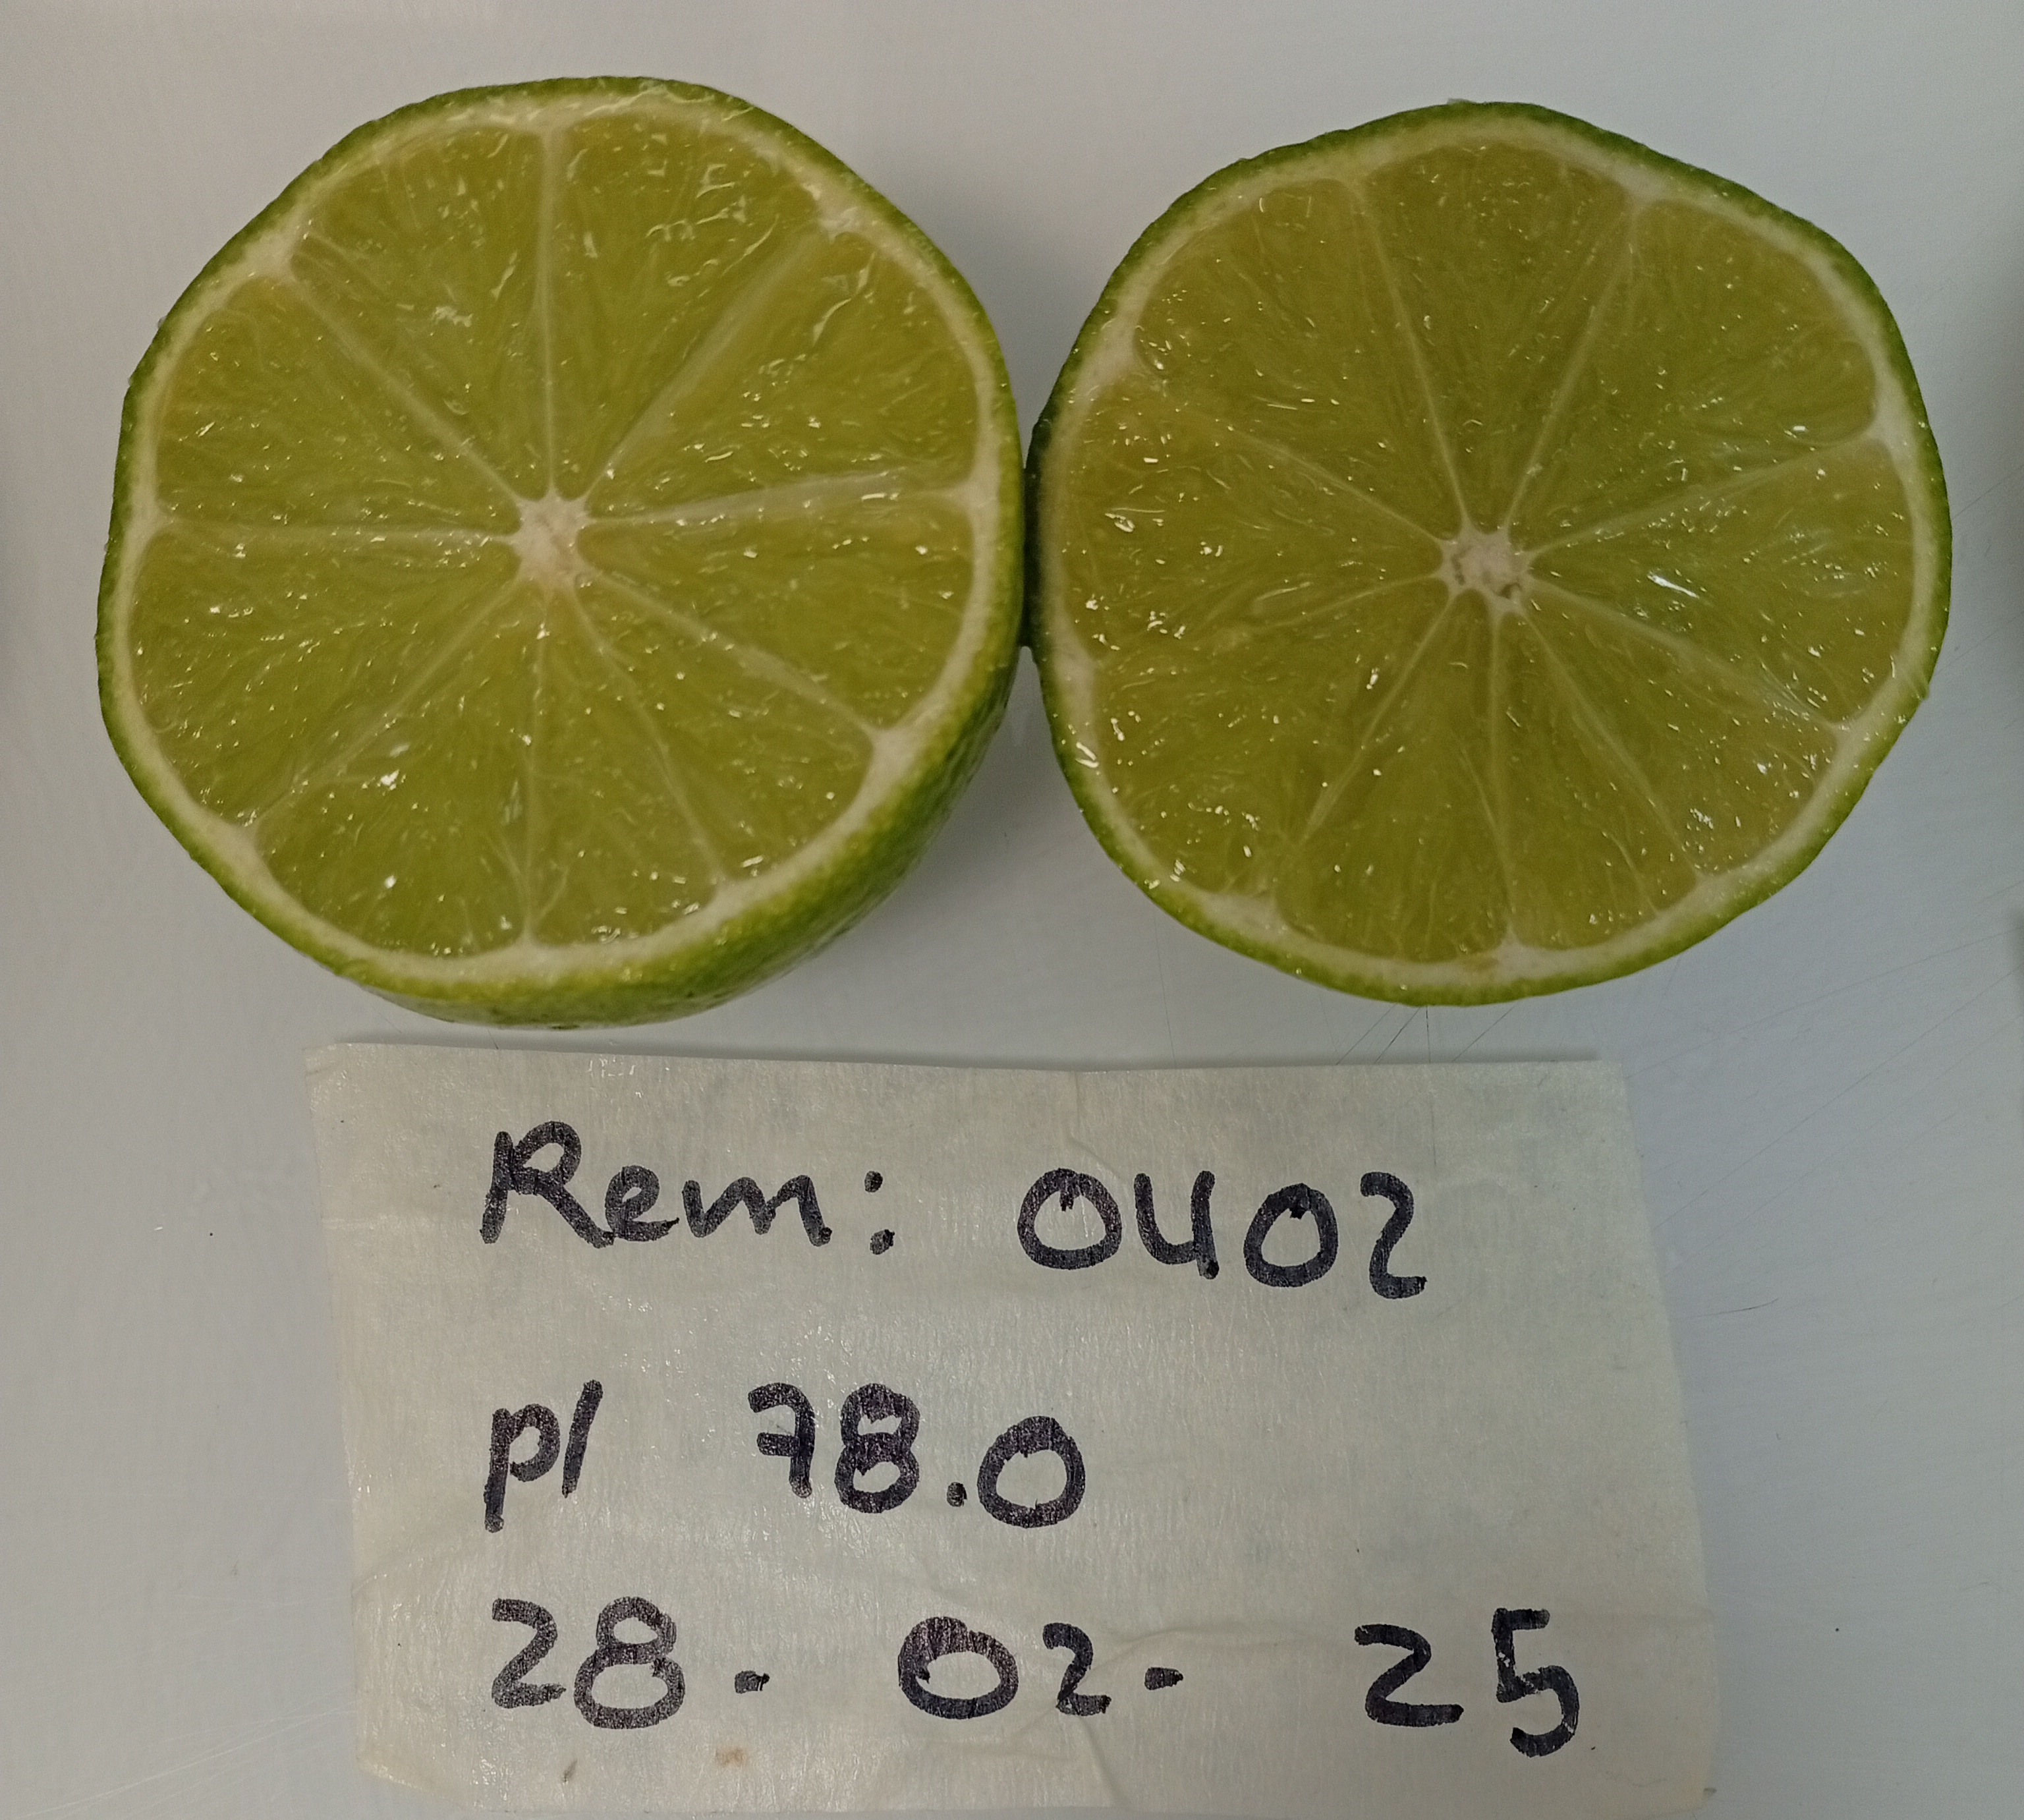 Rem: 0402
pl 78.0
28. 02. 25